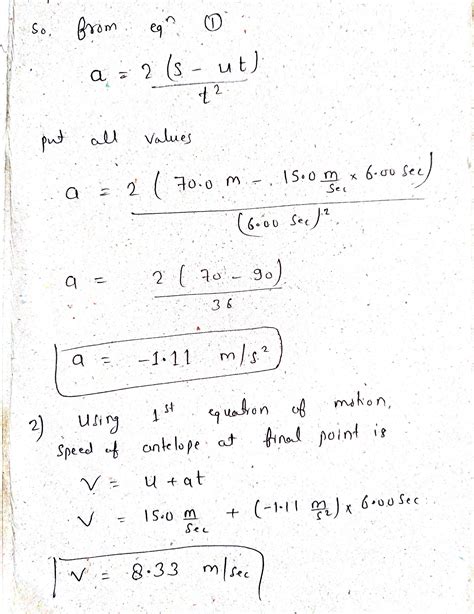 So, from eqn ①
a = 2 (s - ut)
t2
put all values
a = 2 ( 70.0 m - 15.0 m/sec x 6.00 sec)
(6.00 sec)2
a = 2 ( 70 - 90)
36
a = -1.11 m/s2
2) Using 1st equation of motion,
speed of antelope at final point is
V = u + at
V = 15.0 m/sec + (-1.11 m/s2) x 6.00 sec
V = 8.33 m/sec